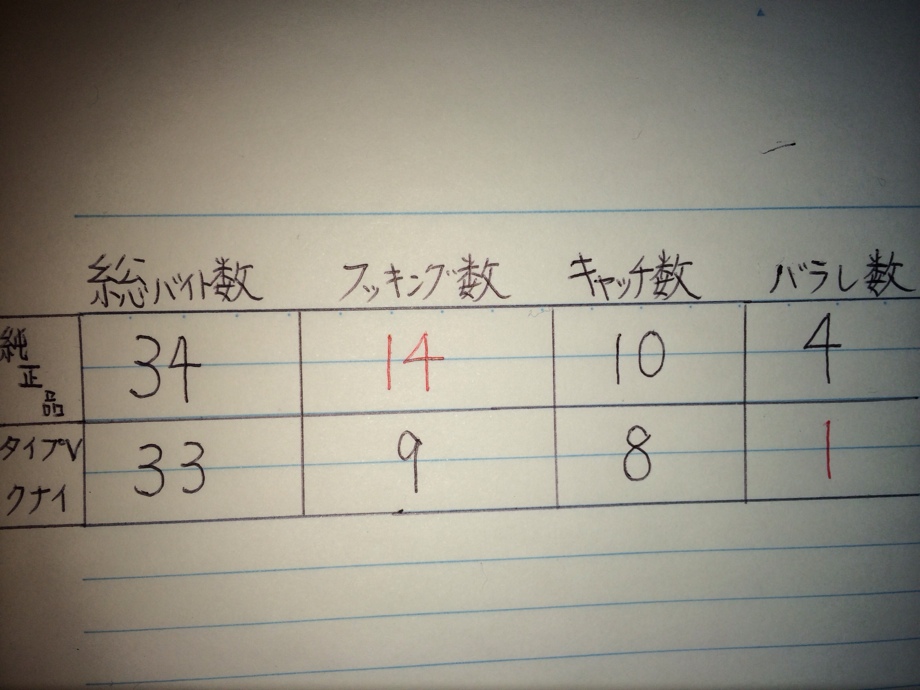 総バイト数 フッキング数 キャッチ数 バラし数
純正品 34 14 10 4
タイプV
クナイ 33 9 8 1